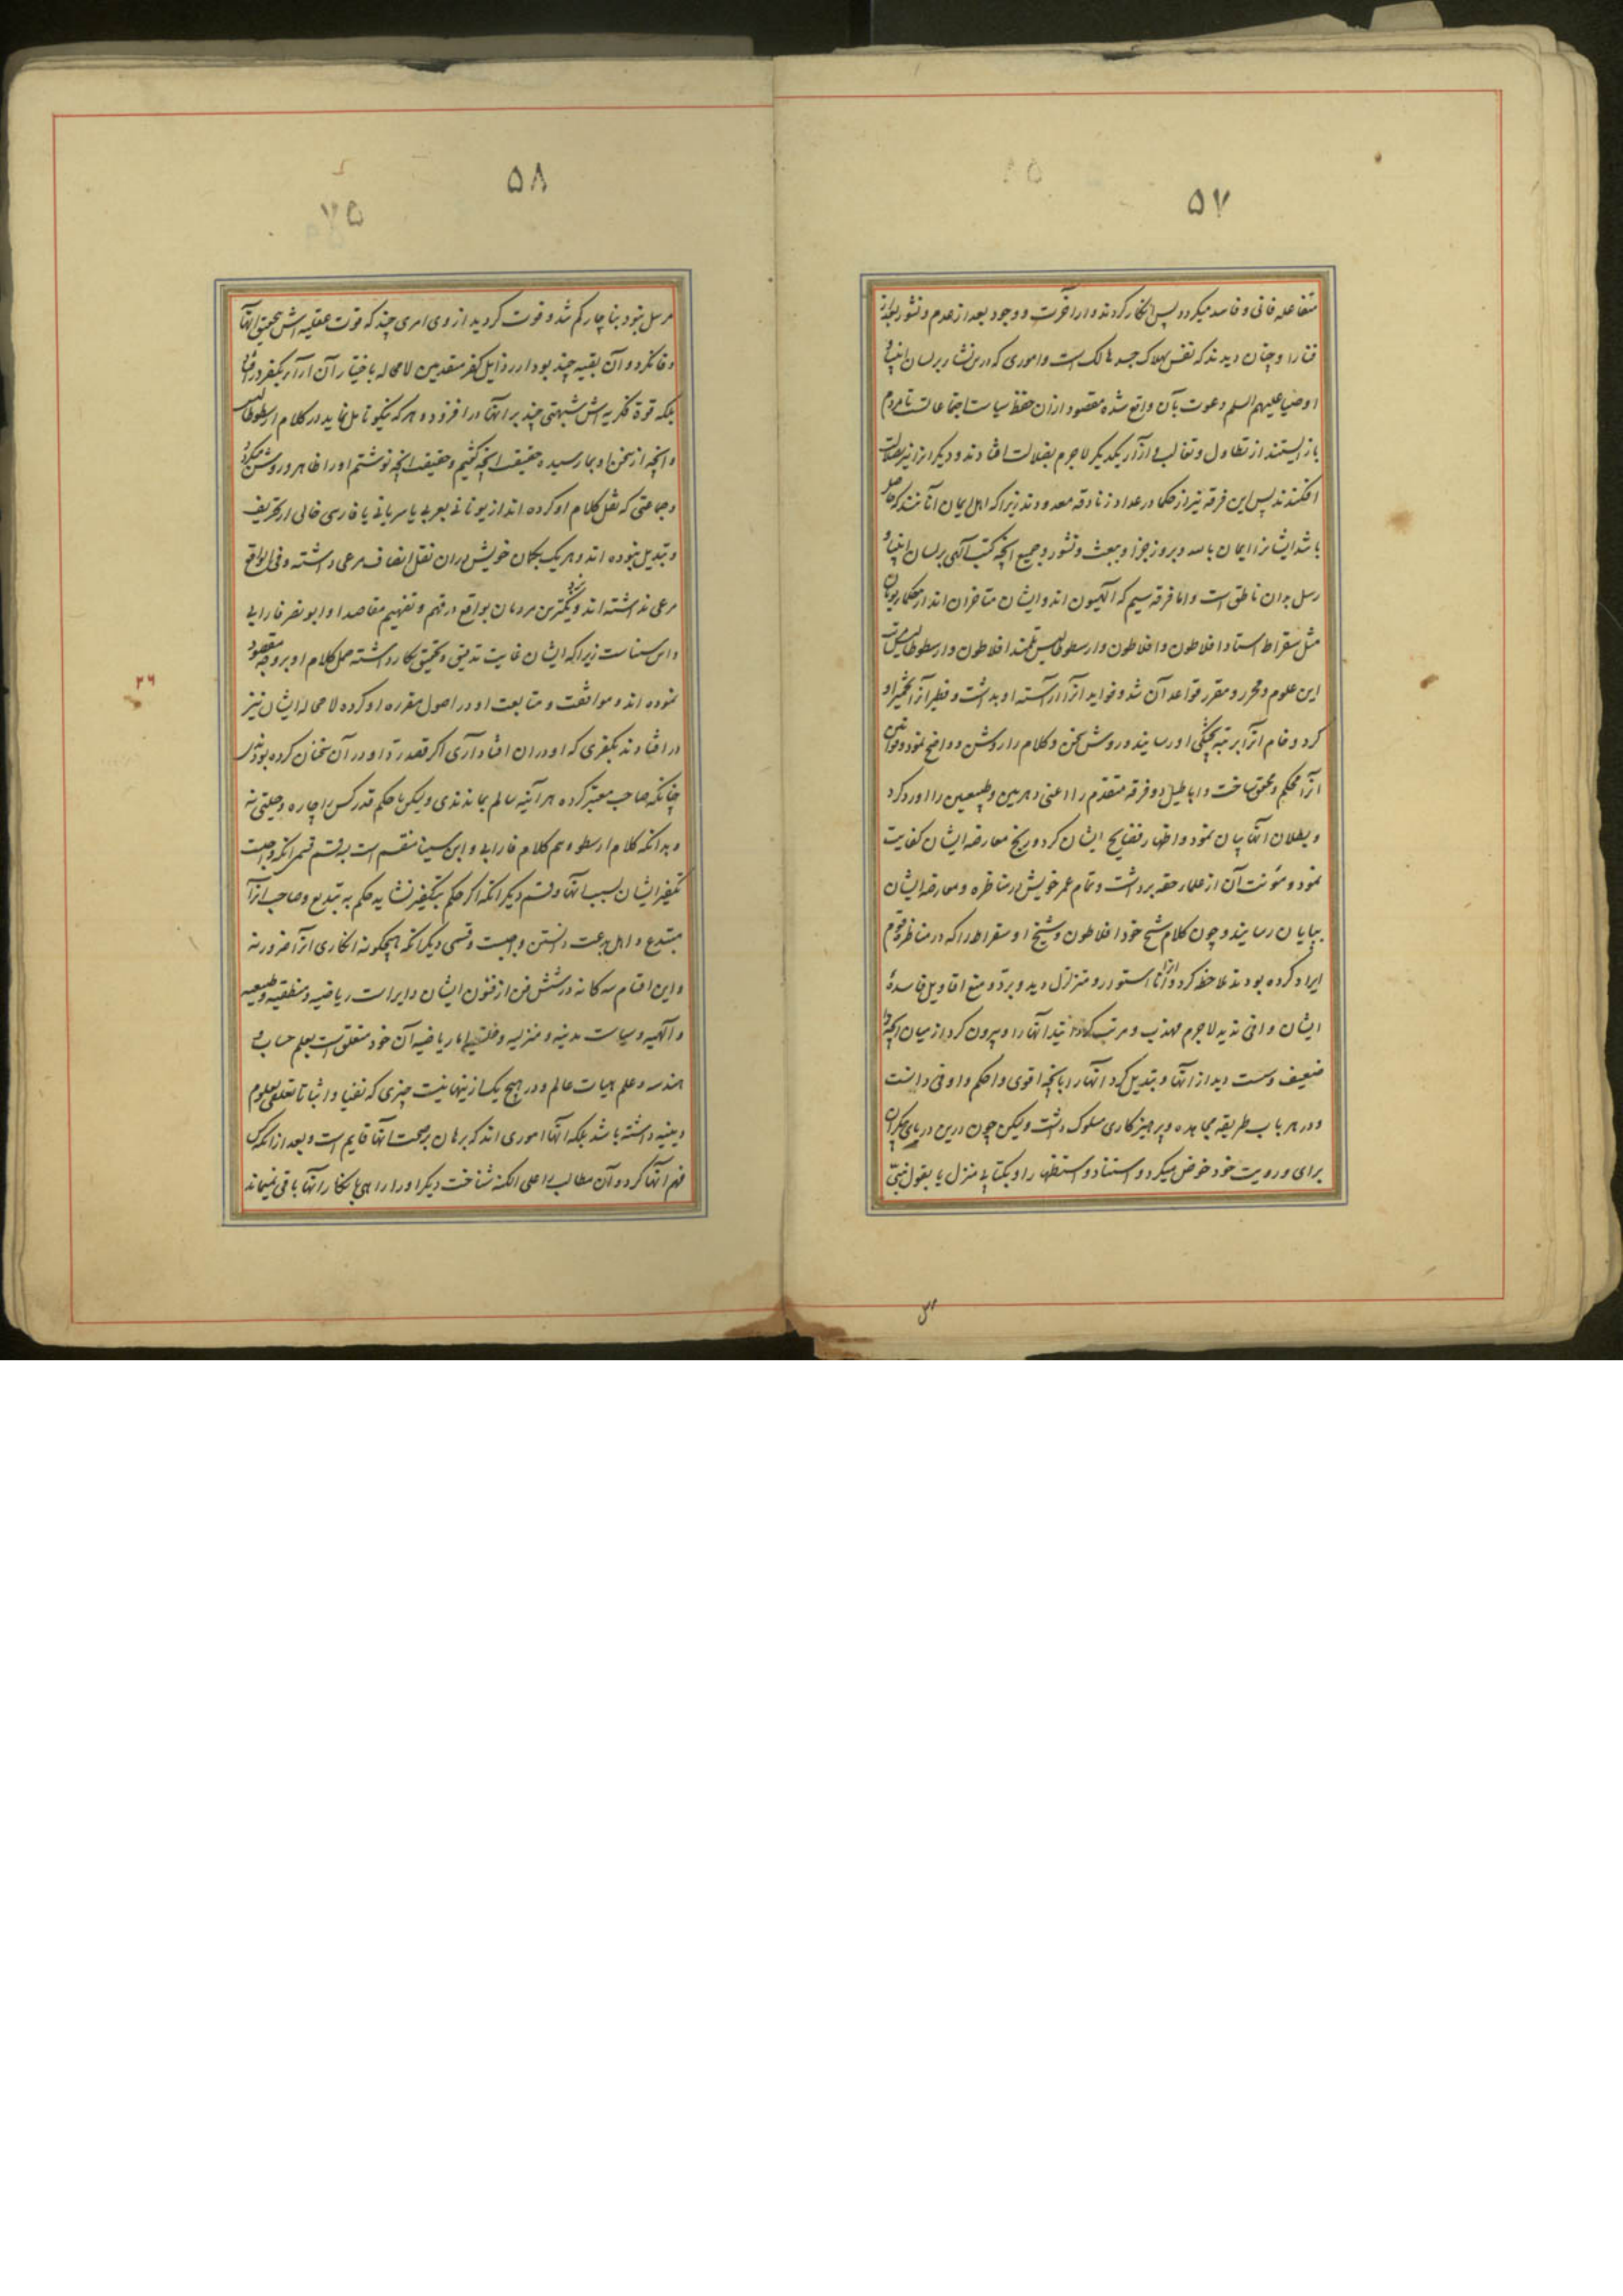 ۵۷
متفاعله فانی و فاسد میکردد پس انکار کردند دار اخرت و وجود بعد از عدم و نشور بعد از
فنا را و چنان دیدند که نفس بهلاک جسد هالک است و اموری که درین نشاء بر لسان انبیاء و
اوصیا علیهم السلم دعوت بآن واقع شده مقصود ازان حفظ سیاست اجتماعات تا مردم
باز ایستند از تطاول و تغالب و ازار یکدیکر لاجرم بضلالت افتادند و دیکرانرا نیز بضلالت
افکندند پس این فرقه نیز از حکما در عداد زنادقه معدودند زیرا که اهل ایمان آنانند که حاصل
باشد ایشانرا ایمان بالله و بروز جزا و ببعث و نشور و جمیع انچه کتب آلهی بر لسان انبیاء و
رسل بدان ناطق است و اما فرقه سیم که آلهیون اند و ایشان متاخران اند از حکماء یونان
مثل سقراط استاد افلاطون و افلاطون و ارسطوطالیس تلمیذ افلاطون و ارسطوطالیس مرتب
این علوم و محرر و مقرر قواعد آن شد و فواید انرا آراسته او بداشت و فطیر آنرا تخمیر او
کرد و خام انرا برتبه پختکی او رسانید و روش سخن و کلام را روشن و واضح نمود و قوانین
انرا محکم و محقق ساخت و اباطیل دو فرقه متقدم را اعنی دهریین و طبیعیین را او رد کرد
و بطلان انها بیان نمود و اظهار فضایح ایشان کرد و رنج معارضه ایشان کفایت
نمود و مؤنت آن از علماء حقه برداشت و تمام عمر خویش در مناظره و معارضه ایشان
بپایان رسانید و چون کلام شیخ خود افلاطون و شیخ او سقراط را که در مناظره قوم
ایراد کرده بودند ملاحظه کرد و انرا نا استوار و متزلزل دید و برد و منع اقاویل فاسدهٔ
ایشان وافی ندید لاجرم مهذب و مرتب کردانید انها را و بیرون کرد از میان انچه را
ضعیف و سست دید از انها و تبدیل کرد انها را بانچه اقوی و احکم و اوفی دانست
و در هر باب طریقه مجاهده و پرهیزکاری سلوک داشت ولیکن چون درین دریای بیکران
برای و رویت خود خوض میکرد و استناد و استظهار او بکتابی منزل یا بقول نبیّ
۵۸
مرسل نبود بناچار کم شد و فوت کردید از وی امری چند که قوت عقلیه اش بتحقیق انها
وفا نکرد و آن بقیه چند بود از رذایل کفر متقدمین لامحاله باختیار آن آراء بکفر در افتاد
بلکه قوة فکریه اش شبهتی چند بر انها در افزود و هر که نیکو تامل نماید در کلام ارسطوطالیس
و انچه از سخن او بما رسیده حقیقت انچه کفتیم و حقیقت انچه نوشتم او را ظاهر و روشن میکردد
و جماعتی که نقل کلام او کرده اند از یونانی بعربی یا سریانی یا فارسی خالی از تحریف
و تبدیل نبوده اند و هر یک بکمان خویش دران نقل انصاف مرعی داشته و فی الواقع
مرعی نداشته اند و نزدیکترین مردمان بواقع در فهم و تفهیم مقاصد او ابو نصر فارابی
و ابن سیناست زیرا که ایشان غایت تدقیق و تحقیق بکار داشته حمل کلام او بر وجه مقصود
نموده اند و موافقت و متابعت او در اصول مقرره او کرده لامحاله ایشان نیز
در افتادند بکفری که او دران افتاد آری اکر قصد ردّ او در آن سخنان کرده بودندی
چنانکه صاحب معتبر کرده هر آینه سالم بماندندی ولیکن با حکم قدر کس را چاره و حیلتی نه
و بدانکه کلام ارسطو و هم کلام فارابی و ابن سینا منقسم است بسه قسم قسمی انکه واجبست
تکفیر ایشان بسبب انها و قسم دیکر انکه اکر حکم بتکفیر نشاید حکم به تبدیع و صاحب انرا
مبتدع و اهل بدعت دانستن واجبست و قسمی دیکر انکه هیچکونه انکاری انرا ضرور نه
و این اقسام سه کانه در شش فن از فنون ایشان دایر است ریاضیه و منطقیه و طبیعیه
و آلهیه و سیاست مدنیه و منزلیه و خلقیه اما ریاضیه آن خود متعلق است بعلم حساب و
هندسه و علم هیات عالم و در هیچ یک از ینها نیست چیزی که نفیا و اثباتا تعلقی بعلوم
دینیه داشته باشد بلکه انها اموری اند که برهان بر صحت انها قایم است و بعد از انکه کس
فهم انها کرد و آن مطالب را علی الکنه شناخت دیکر او را راهی بانکار انها باقی نمیماند
۲۶